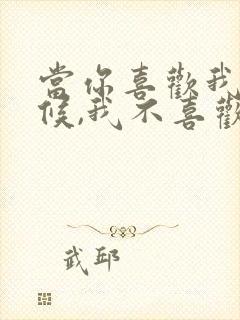 當你喜歡我
候,我不喜歡
武邱